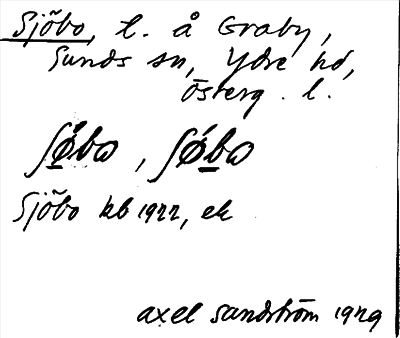 Sjöbo, t. å Graby,
Sunds sn, Ydre hd,
Österg. l.
ʃǿbω, ʃǿbω
Sjöbo kb 1922, ek
axel sandström 1929